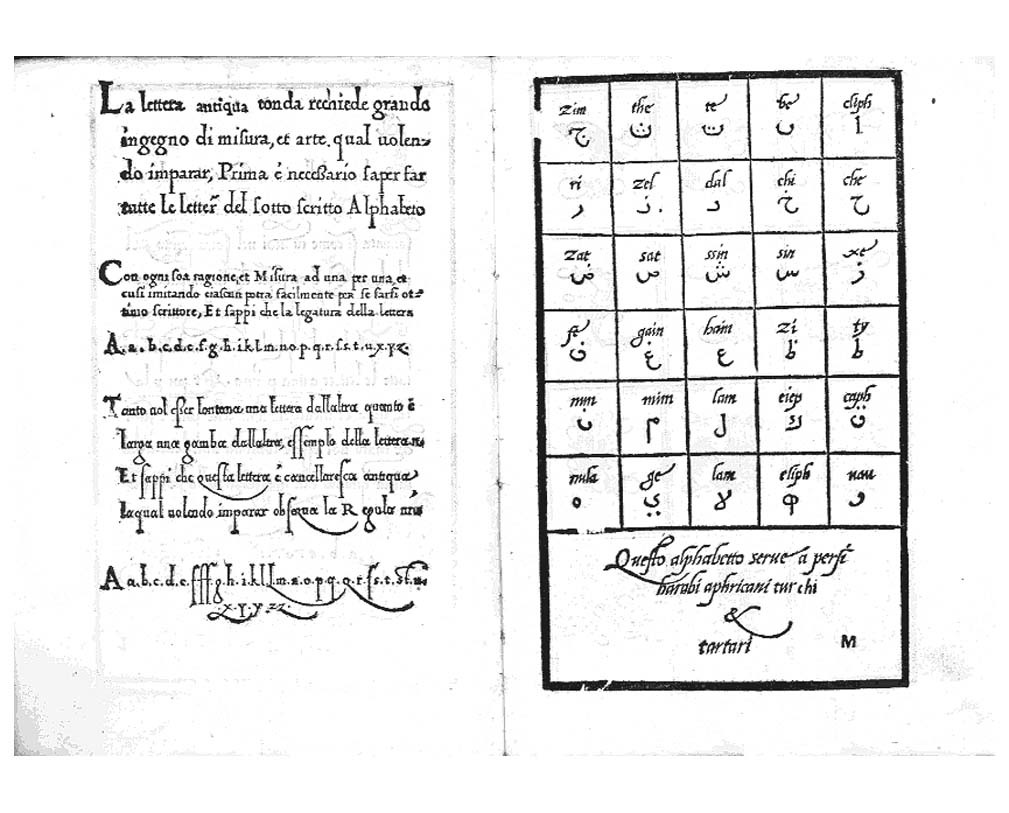 La lettera antiqua tonda rechiede grande
ingegno di misura, et arte. qual uolen-
do imparar, Prima è necessario saper far
tutte le letter̃ del sotto scritto Alphabeto
Con ogni soa ragione, et Misura ad una per una, et
cusi imitando ciascun potra facilmente per se farsi ot-
timo scrittore, Et sappi che la legatura della lettera
A.a.b.c.d.e.f.g.h.i.k.l.m.n.o.p.q.r.ſ.s.t.u.x.y.z.
Tanto uol esser lontana una lettera dallaltra quanto è
larga una gamba dallaltra, essemplo della lettera.n.
Et sappi che questa lettera è cancellaresca antiqua
laqual uolendo imparar obserua la Regula
A a.b.c.d.e.f.g.h.i.k.l.m.n.o.p.q.r.ſ.s.t.st.u.
x.y.z.
zim the te be eliph
ج ث ت ب ا
ri zel dal chi che
ر ذ د خ ح
zat sat ssin sin xe
ض ص ش س ز
fe gain hain zi ty
ف غ ع ظ ط
nun mim lam eiep caph
ن م ل ك ق
mila ge lam eliph uau
ه ي لا و
Questo alphabetto serue a persi
harabi aphricani turchi
&
tartari M